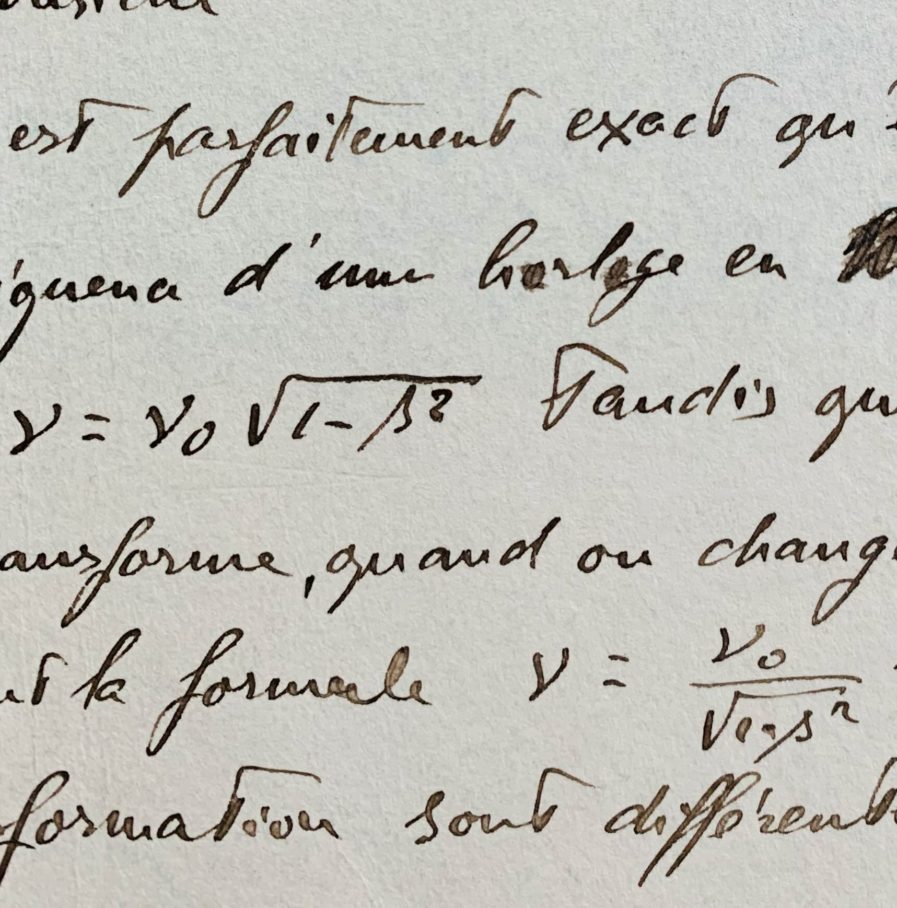 est parfaitement exact qu'
d'une horloge en
ν = ν₀ √1-β² Tandis qu
ansforme, quand on chang
nt la formule ν = ν₀/√1-β²
formation sont différent